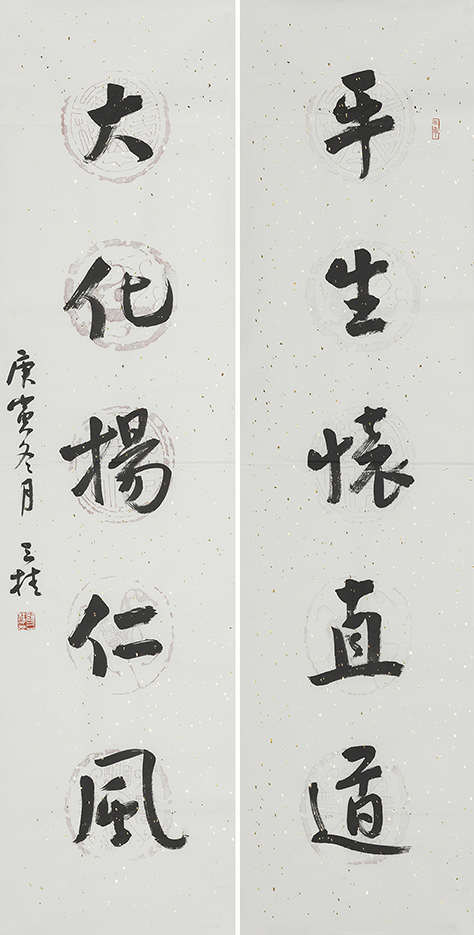 平生懷直道
大化揚仁風
庚寅冬月 三桂